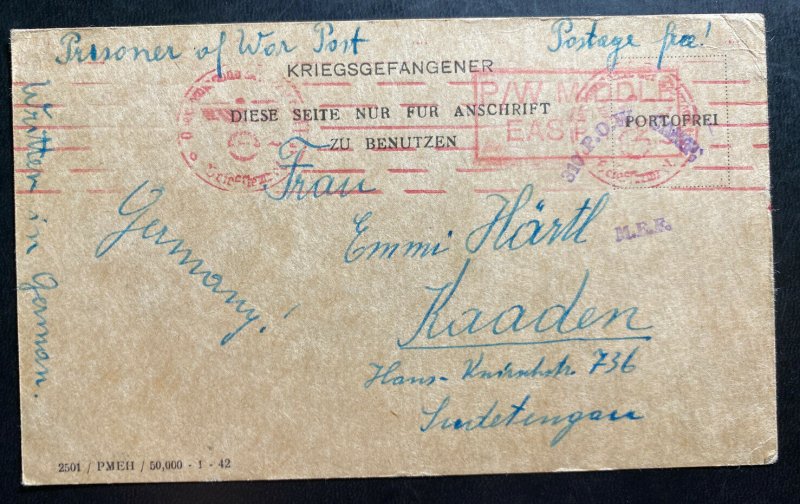 Prisoner of War Post
Postage free!
KRIEGSGEFANGENER
P/W MIDDLE
EAST
DIESE SEITE NUR FUR ANSCHRIFT
ZU BENUTZEN
PORTOFREI
310 P.O.W.
M.E.F.
Written in German.
Germany!
Frau
Emmi Härtl
Kaaden
Hans-
736
Sudetengau
2501 / PMEH / 50,000 - 1 - 42